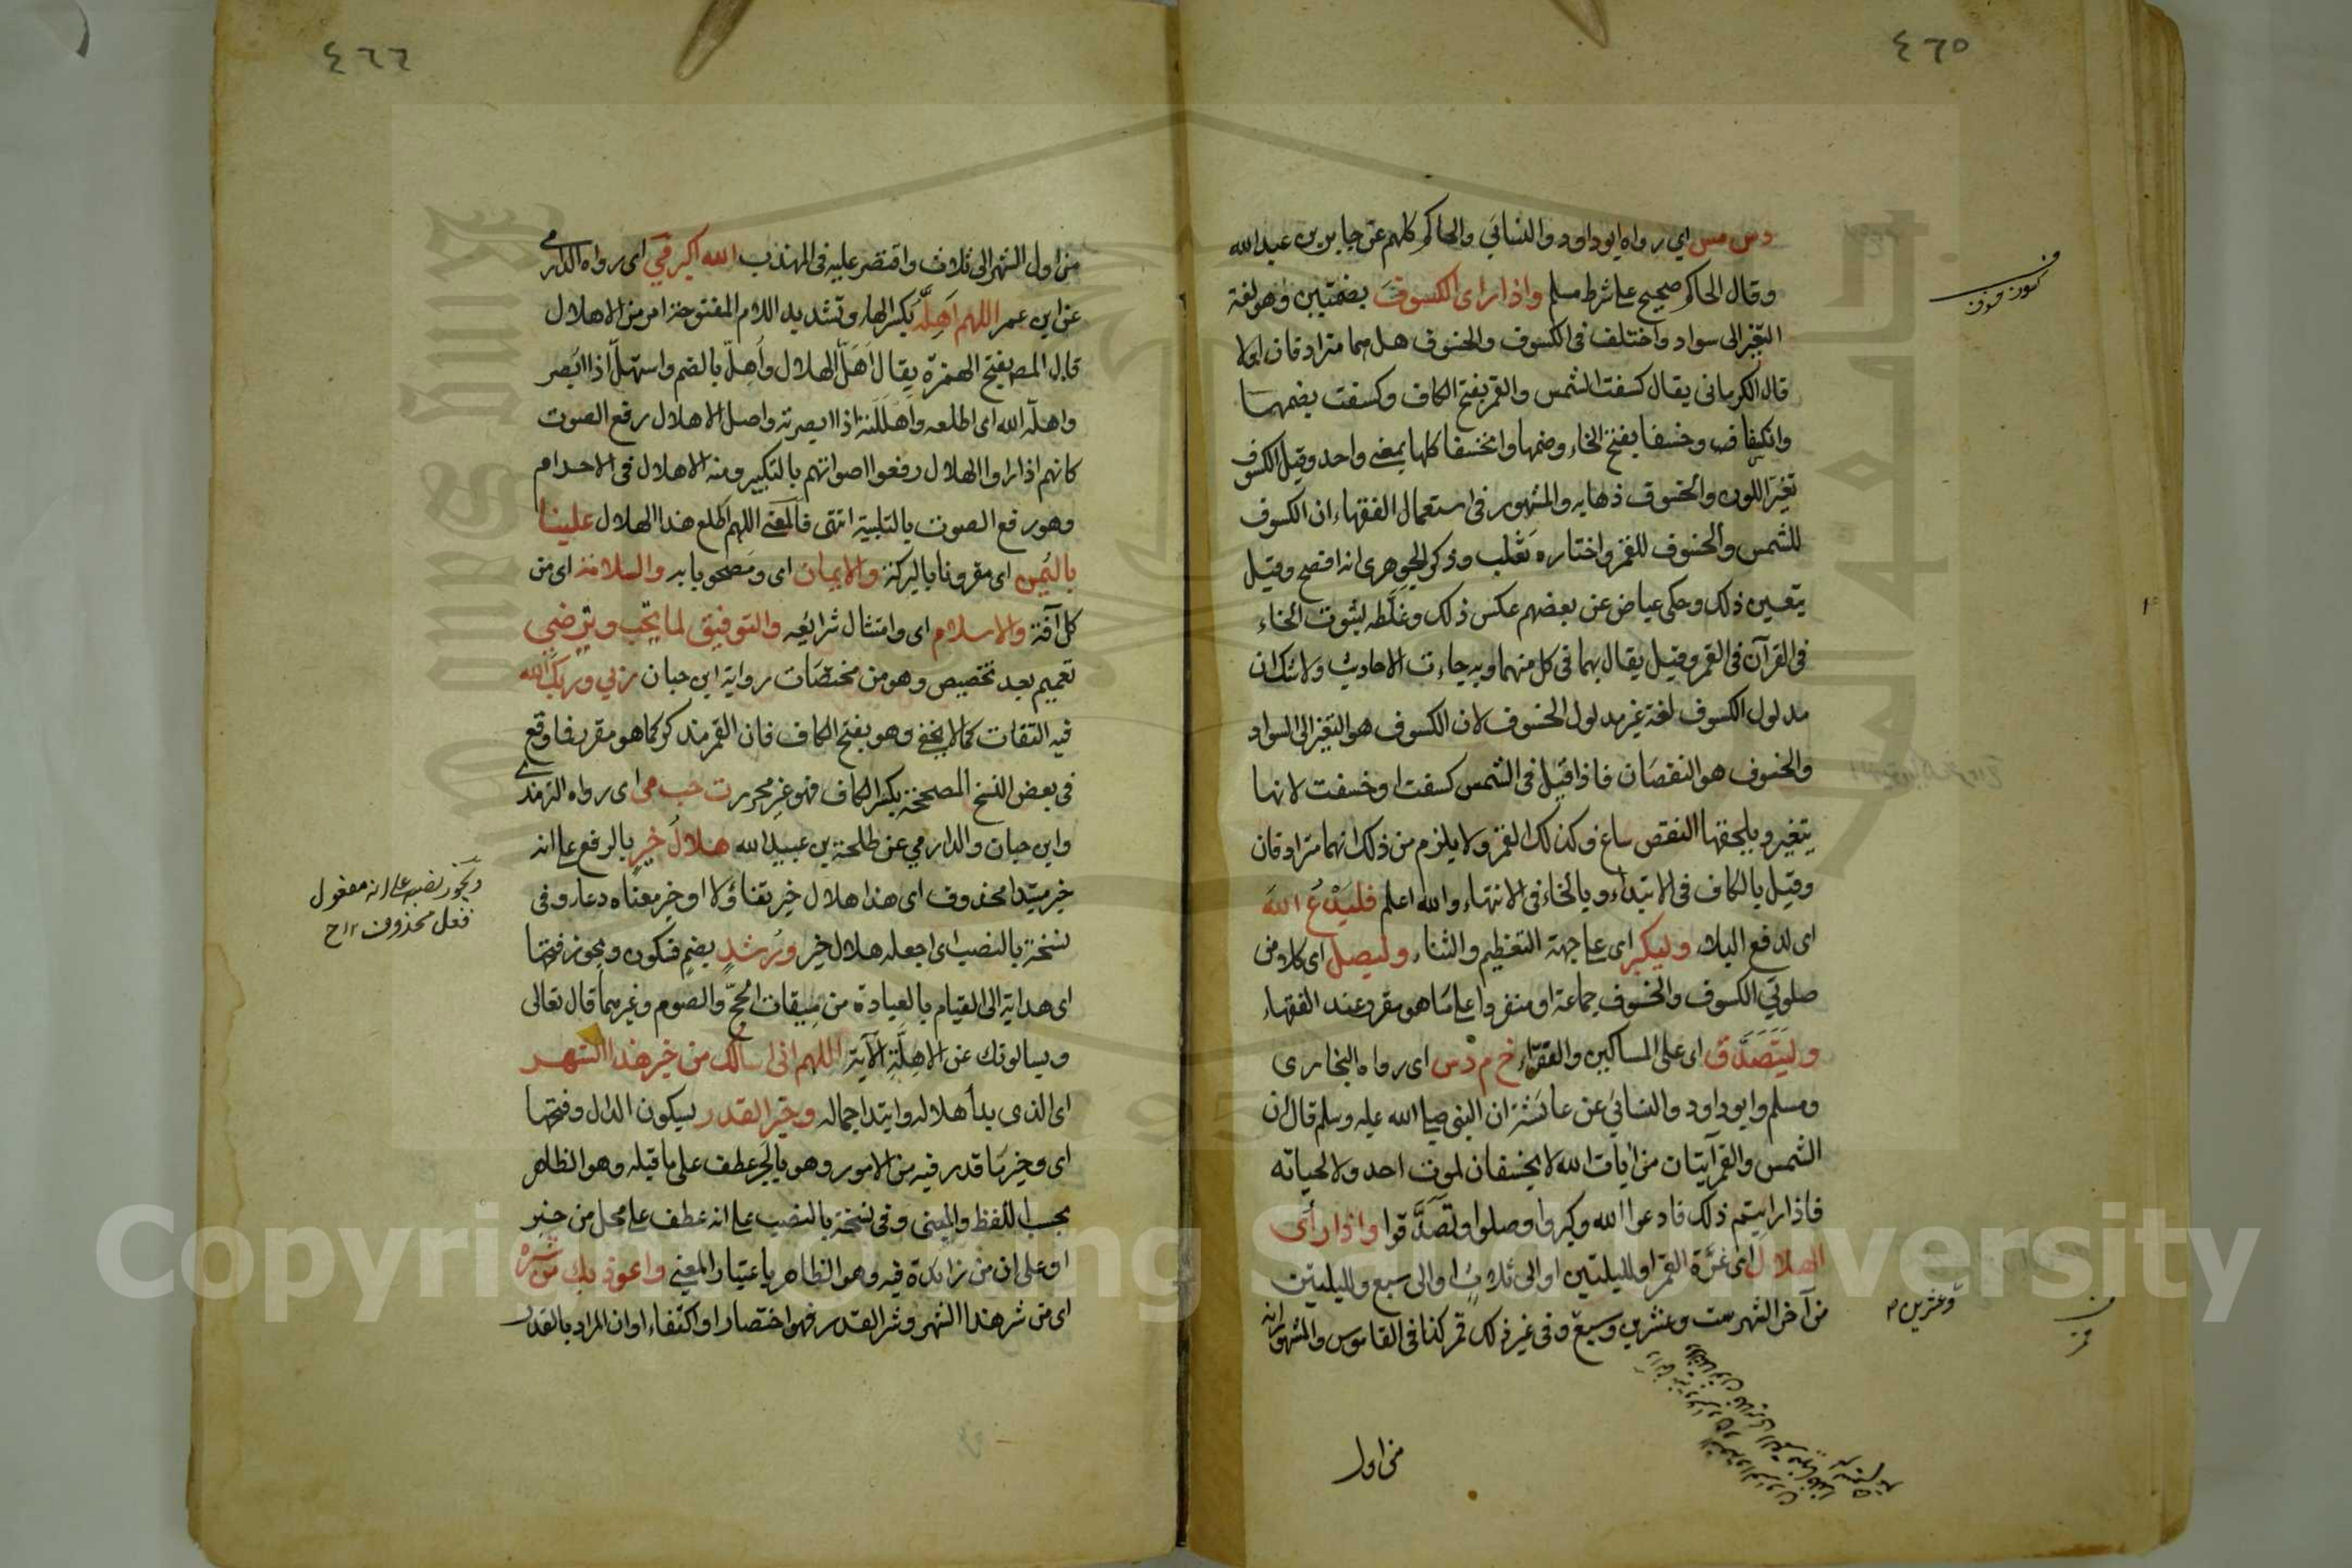 ٤٦٥
د س مس اي رواه ابو داود والنسائي والحاكم كلهم عن جابر بن عبد الله
وقال الحاكم صحيح على شرط مسلم واذا راى الكسوف بضمتين وهو لغة
التغير الى سواد واختلف فى الكسوف والخسوف هل هما مترادفان او لا
قال الكرمانى يقال كسفت الشمس والقمر بفتح الكاف وكسفت بضمها
وانكسفا وخسفا بفتح الخاء وضمها وانخسفا كلها بمعنى واحد وقيل الكسوف
تغير اللون والخسوف ذهابه والمشهور فى استعمال الفقهاء ان الكسوف
للشمس والخسوف للقمر واختاره ثعلب وذكر الجوهرى انه افصح وقيل
يتعين ذلك وحكى عياض عن بعضهم عكس ذلك وغلطه لثبوت الخاء
فى القرآن فى القمر وقيل يقال بهما فى كل منهما وبه جاءت الاحاديث ولا شك ان
مدلول الكسوف لغة غير مدلول الخسوف لان الكسوف هو التغير الى السواد
والخسوف هو النقصان فاذا قيل فى الشمس كسفت او خسفت لانها
يتغير ويلحقها النقص ساغ وكذلك القمر ولا يلزم من ذلك انهما مترادفان
وقيل بالكاف فى الابتداء وبالخاء فى الانتهاء والله اعلم فليدع الله
اى لدفع البلاء وليكبر اى على جهة التعظيم والثناء وليصل اى كلا من
صلوتي الكسوف والخسوف جماعة او منفردا على ما هو مقرر عند الفقهاء
وليتصدق اى على المساكين والفقراء خ م د س اى رواه البخارى
ومسلم وابو داود والنسائي عن عائشة ان النبى صلى الله عليه وسلم قال ان
الشمس والقمر آيتان من آيات الله لا يخسفان لموت احد ولا لحياته
فاذا رايتم ذلك فادعوا الله وكبروا وصلوا وتصدقوا واذا رأى
الهلال اى غرة القمر او لليلتين او الى ثلاث او الى سبع ولليلتين
من آخر الشهر ست وعشرين وسبع وفى غير ذلك قمر كذا فى القاموس والمشهور انه
وعشرين
من اول
٤٦٦
من اول الشهر الى ثلاث واقتصر عليه فى المهذب الله اكبر مي اى رواه الدارمي
عن ابن عمر اللهم اهله بكسر الهاء وتشديد اللام المفتوحة امر من الاهلال
قال المص بفتح الهمزة يقال اهل الهلال واهل بالضم واستهل اذا ابصر
واهله الله اى اطلعه واهللته اذا ابصرته واصل الاهلال رفع الصوت
كانهم اذا راوا الهلال رفعوا اصواتهم بالتكبير ومنه الاهلال فى الاحرام
وهو رفع الصوت بالتلبية انتهى فالمعنى اللهم اطلع هذا الهلال علينا
باليمن اى مقرونا بالبركة والايمان اى ومصحوبا به والسلامة اى من
كل آفة والاسلام اى وامتثال شرائعه والتوفيق لما تحب وترضى
تعميم بعد تخصيص وهو من مختصات رواية ابن حبان ربي وربك الله
فيه التفات كما لا يخفى وهو بفتح الكاف فان القمر مذكر كما هو مقرر فما وقع
فى بعض النسخ المصححة بكسر الكاف فهو غير محرر ت حب مى اى رواه الترمذي
وابن حبان والدارمي عن طلحة بن عبيد الله هلال خير بالرفع على انه
خبر مبتدا محذوف اى هذا هلال خير تفاؤلا او خبر معناه دعاء وفى
نسخة بالنصب اى اجعله هلال خير ورشد بضم فسكون ويجوز فتحها
اى هداية الى القيام بالعبادة من ميقات الحج والصوم وغيرهما قال تعالى
ويسالونك عن الاهلة الآية اللهم انى اسالك من خير هذا الشهر
اى الذى بدأ هلاله وابتدا جماله وخير القدر بسكون الدال وفتحها
اى وخير ما قدر فيه من الامور وهو بالجر عطف على ما قبله وهو الظاهر
بحسب اللفظ والمعنى وفى نسخة بالنصب على انه عطف على محل من خير
او على ان من زائدة فيه وهو الظاهر باعتبار المعنى واعوذ بك من شره
اى من شر هذا الشهر وشر القدر فهو اختصار او اكتفاء او ان المراد بالقدر
ويجوز نصبه على انه مفعول
فعل محذوف ١٢ ح
Copyright © King Saud University